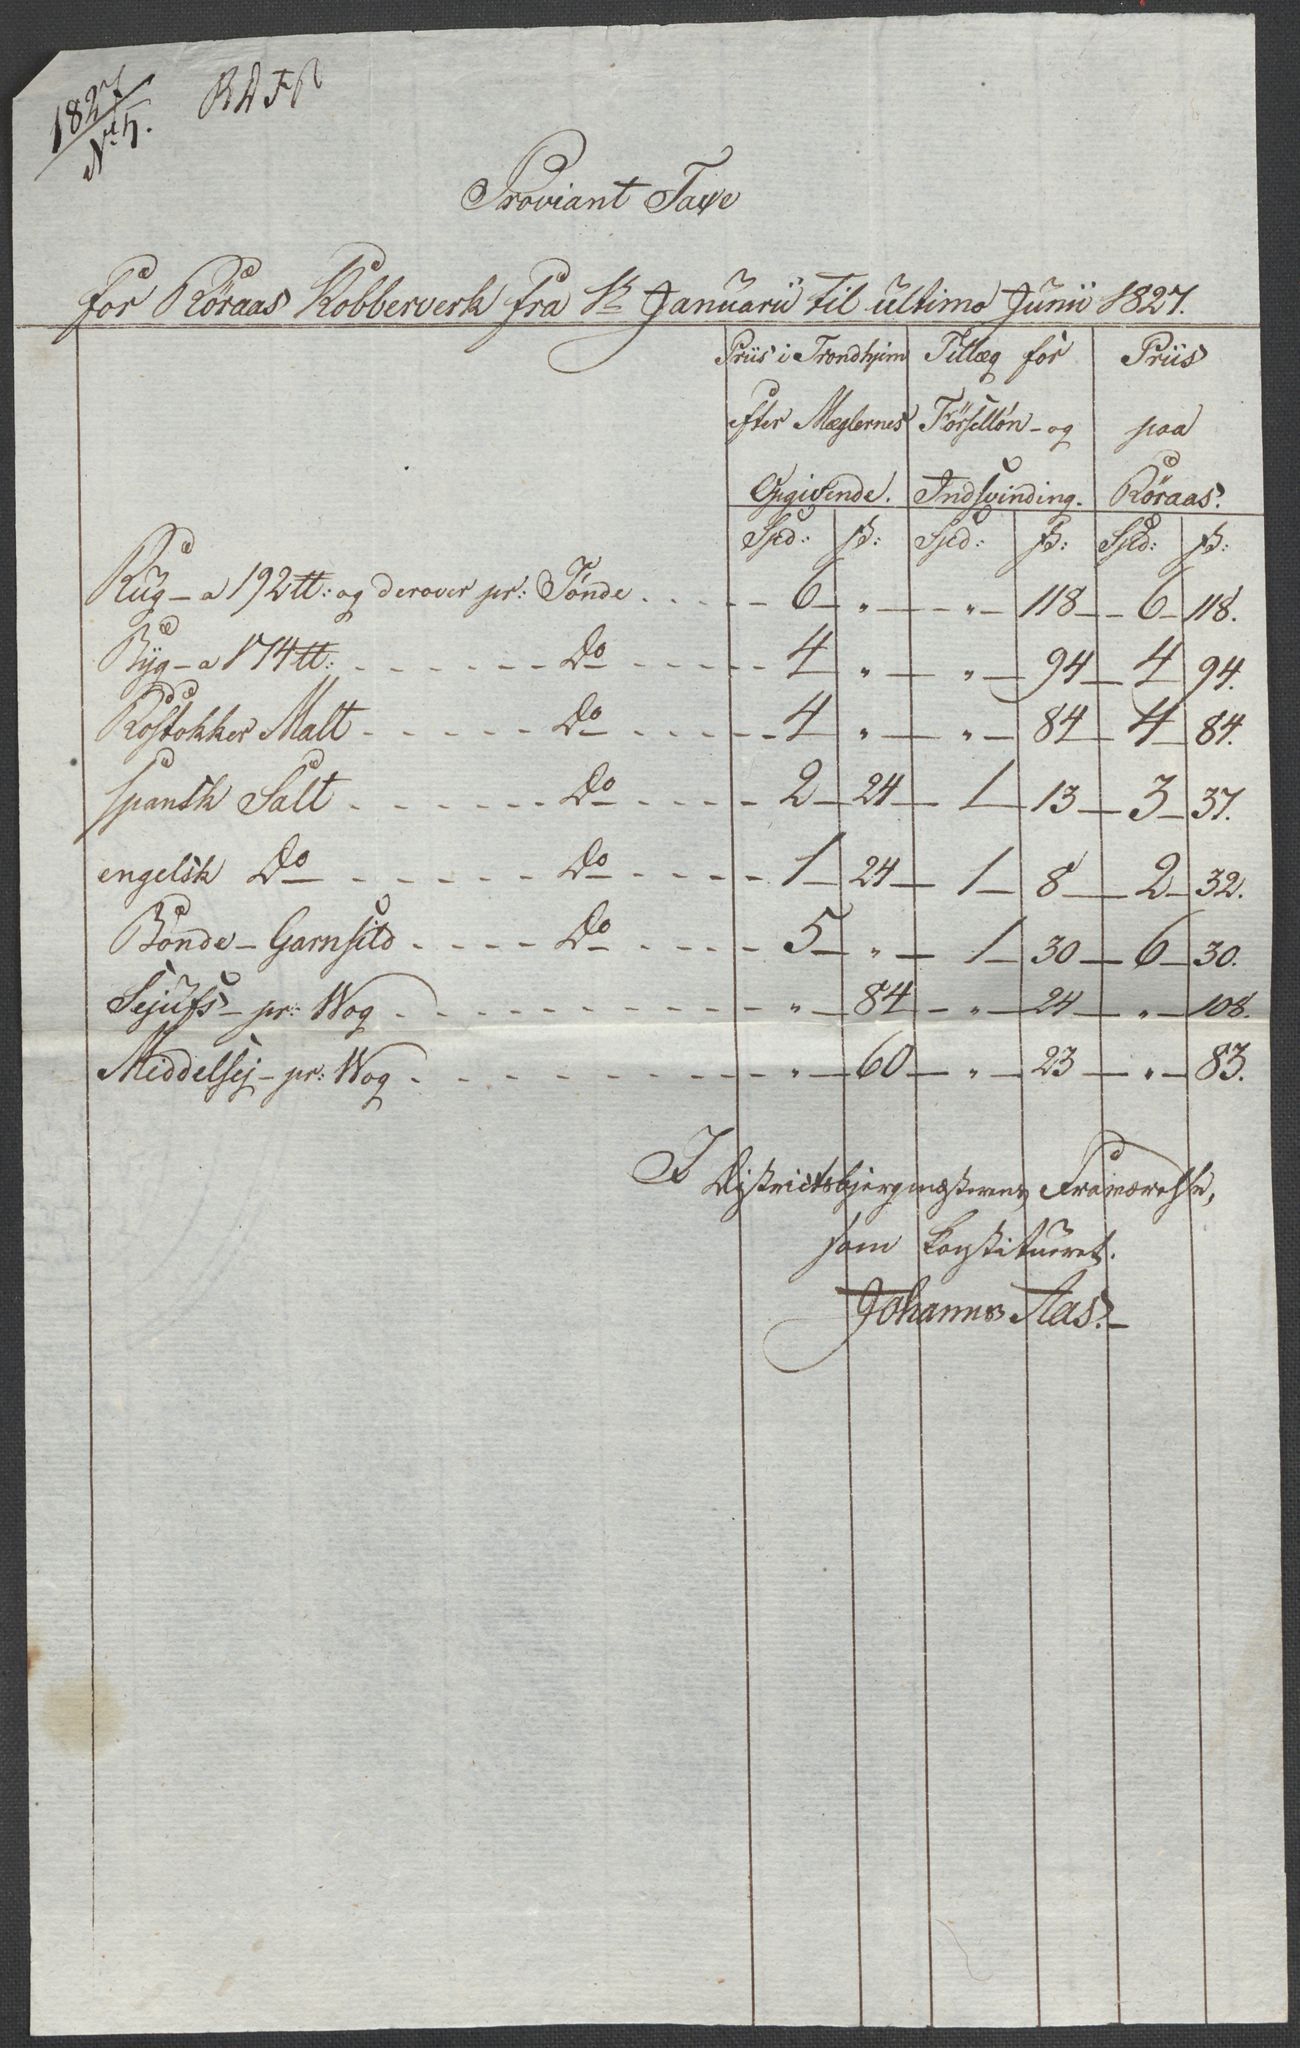 1827
No 7.
R D F R
Proviant Taxe
for Röraas Kobberverk fra 1te Januarii til ultimo Junii 1827.
Priis i Trondhjem efter Mæglernes Opgivende. Tillæg for Förselløn- og Indsvinding. Priis paa Röraas.
Spd: ß: Spd: ß: Spd: ß:
Rug - a 192 tt: og derover pr: Tønde . . . . 6 " " 118 6 118.
Byg - a 174 tt: . . . . Do . . . . 4 " " 94 4 94.
Rostokker Malt . . . . Do . . . . 4 " " 84 4 84.
spansk Salt . . . . Do . . . . 2 24 1 13 3 37.
engelsk Do . . . . Do . . . . 1 24 1 8 2 32.
Bonde - Garnsild . . . . Do . . . . 5 " 1 30 6 30.
Sejufs - pr: Wog . . . . " 84 " 24 " 108.
Middelsej - pr: Wog . . . . " 60 " 23 " 83.
I Districtsbjergmesterens Fraværelse,
som konstitueret.
Johannes Aas.